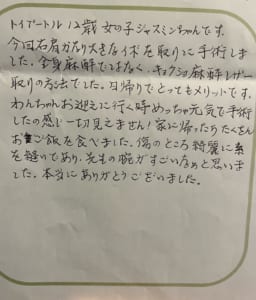 トイプードル 12歳 女の子 ジャスミンちゃんです。
今回右肩かなり大きなイボを取りに手術しま
した。全身麻酔ではなく、キョクショ麻酔レザー
取りの方法でした。日帰りでとってもメリットです。
わんちゃんお迎えに行く時めっちゃ元気で手術
したの感じ一切見えません！家に帰ったらたくさん
おご飯を食べました。傷のところ綺麗に糸
を縫いであり、先生の腕がすごいなあと思いま
した。本当にありがとうございました。